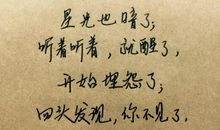 星光也暗了;
听着听着，就醒了，
开始埋怨了;
回头发现，你不见了，